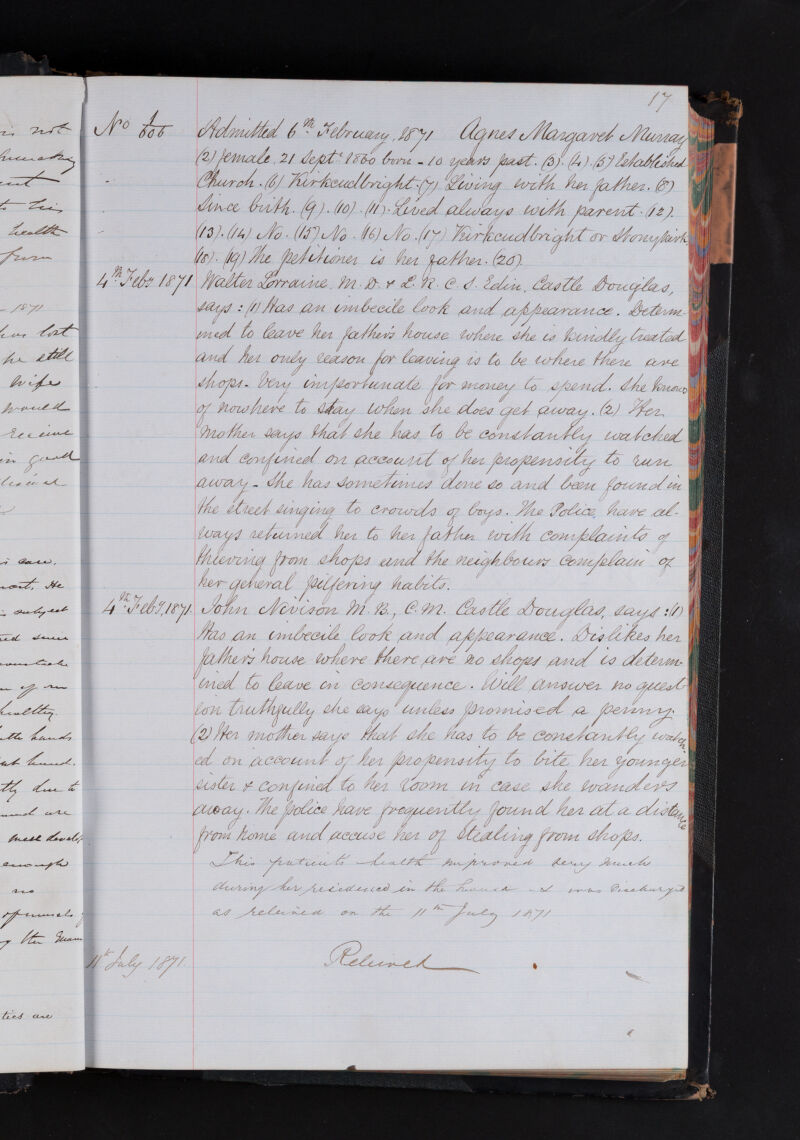 17
No 1/606 Admitted 6th February, 1871 Agnes Margaret Murray
(2) female. 21 Septr 1860 born - 10 years past. (3). (4). (5) Established
Church. (6) Kirkcudbright. (7) Living with her father. (8)
Since birth. (9). (10). (11). Lived always with parent. (12).
(13). (14) No. (15) No. (16) No. (17) Kirkcudbright or Stonykirk
(18). (19) The petitioner is her father. (20)
4th Feby 1871 Walter Lorraine M.D. & L.R.C.S. Edin, Castle Douglas,
says: (1) Has an imbecile look and appearance. Determ-
ined to leave her father's house where she is kindly treated
and her only reason for leaving is to be where there are
shops. Very importunate for money to spend. She knows
of nowhere to stay when she does get away. (2) Her
mother says that she has to be constantly watched
and confined on account of her propensity to run
away - She has sometimes done so and been found in
the street singing to crowds of boys. The Police have al-
ways returned her to her father with complaints of
thieving from shops and the neighbours complain of
her general pilfering habits.
4th Feby, 1871 John Nivison M.B., C.M. Castle Douglas, says: (1)
Has an imbecile look and appearance. Dislikes her
father's house where there are no shops and is determ-
ined to leave in consequence. Will answer no quest-
ion truthfully she says unless promised a penny.
(2) Her mother says that she has to be constantly watch-
ed on account of her propensity to bite her younger
sister & confined to her room in case she wanders
away. The police have frequently found her at a distance
from home and accuse her of stealing from shops.
This patients health improved very much
during her residence in the house & was discharged
as relieved on the 11th July 1871
11th July 1871. Relieved